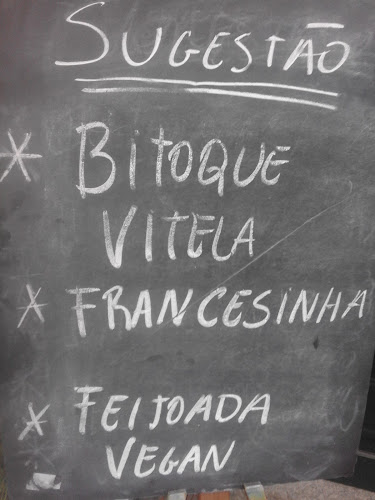 SUGESTÃO
* BITOQUE
VITELA
* FRANCESINHA
* FEIJOADA
VEGAN